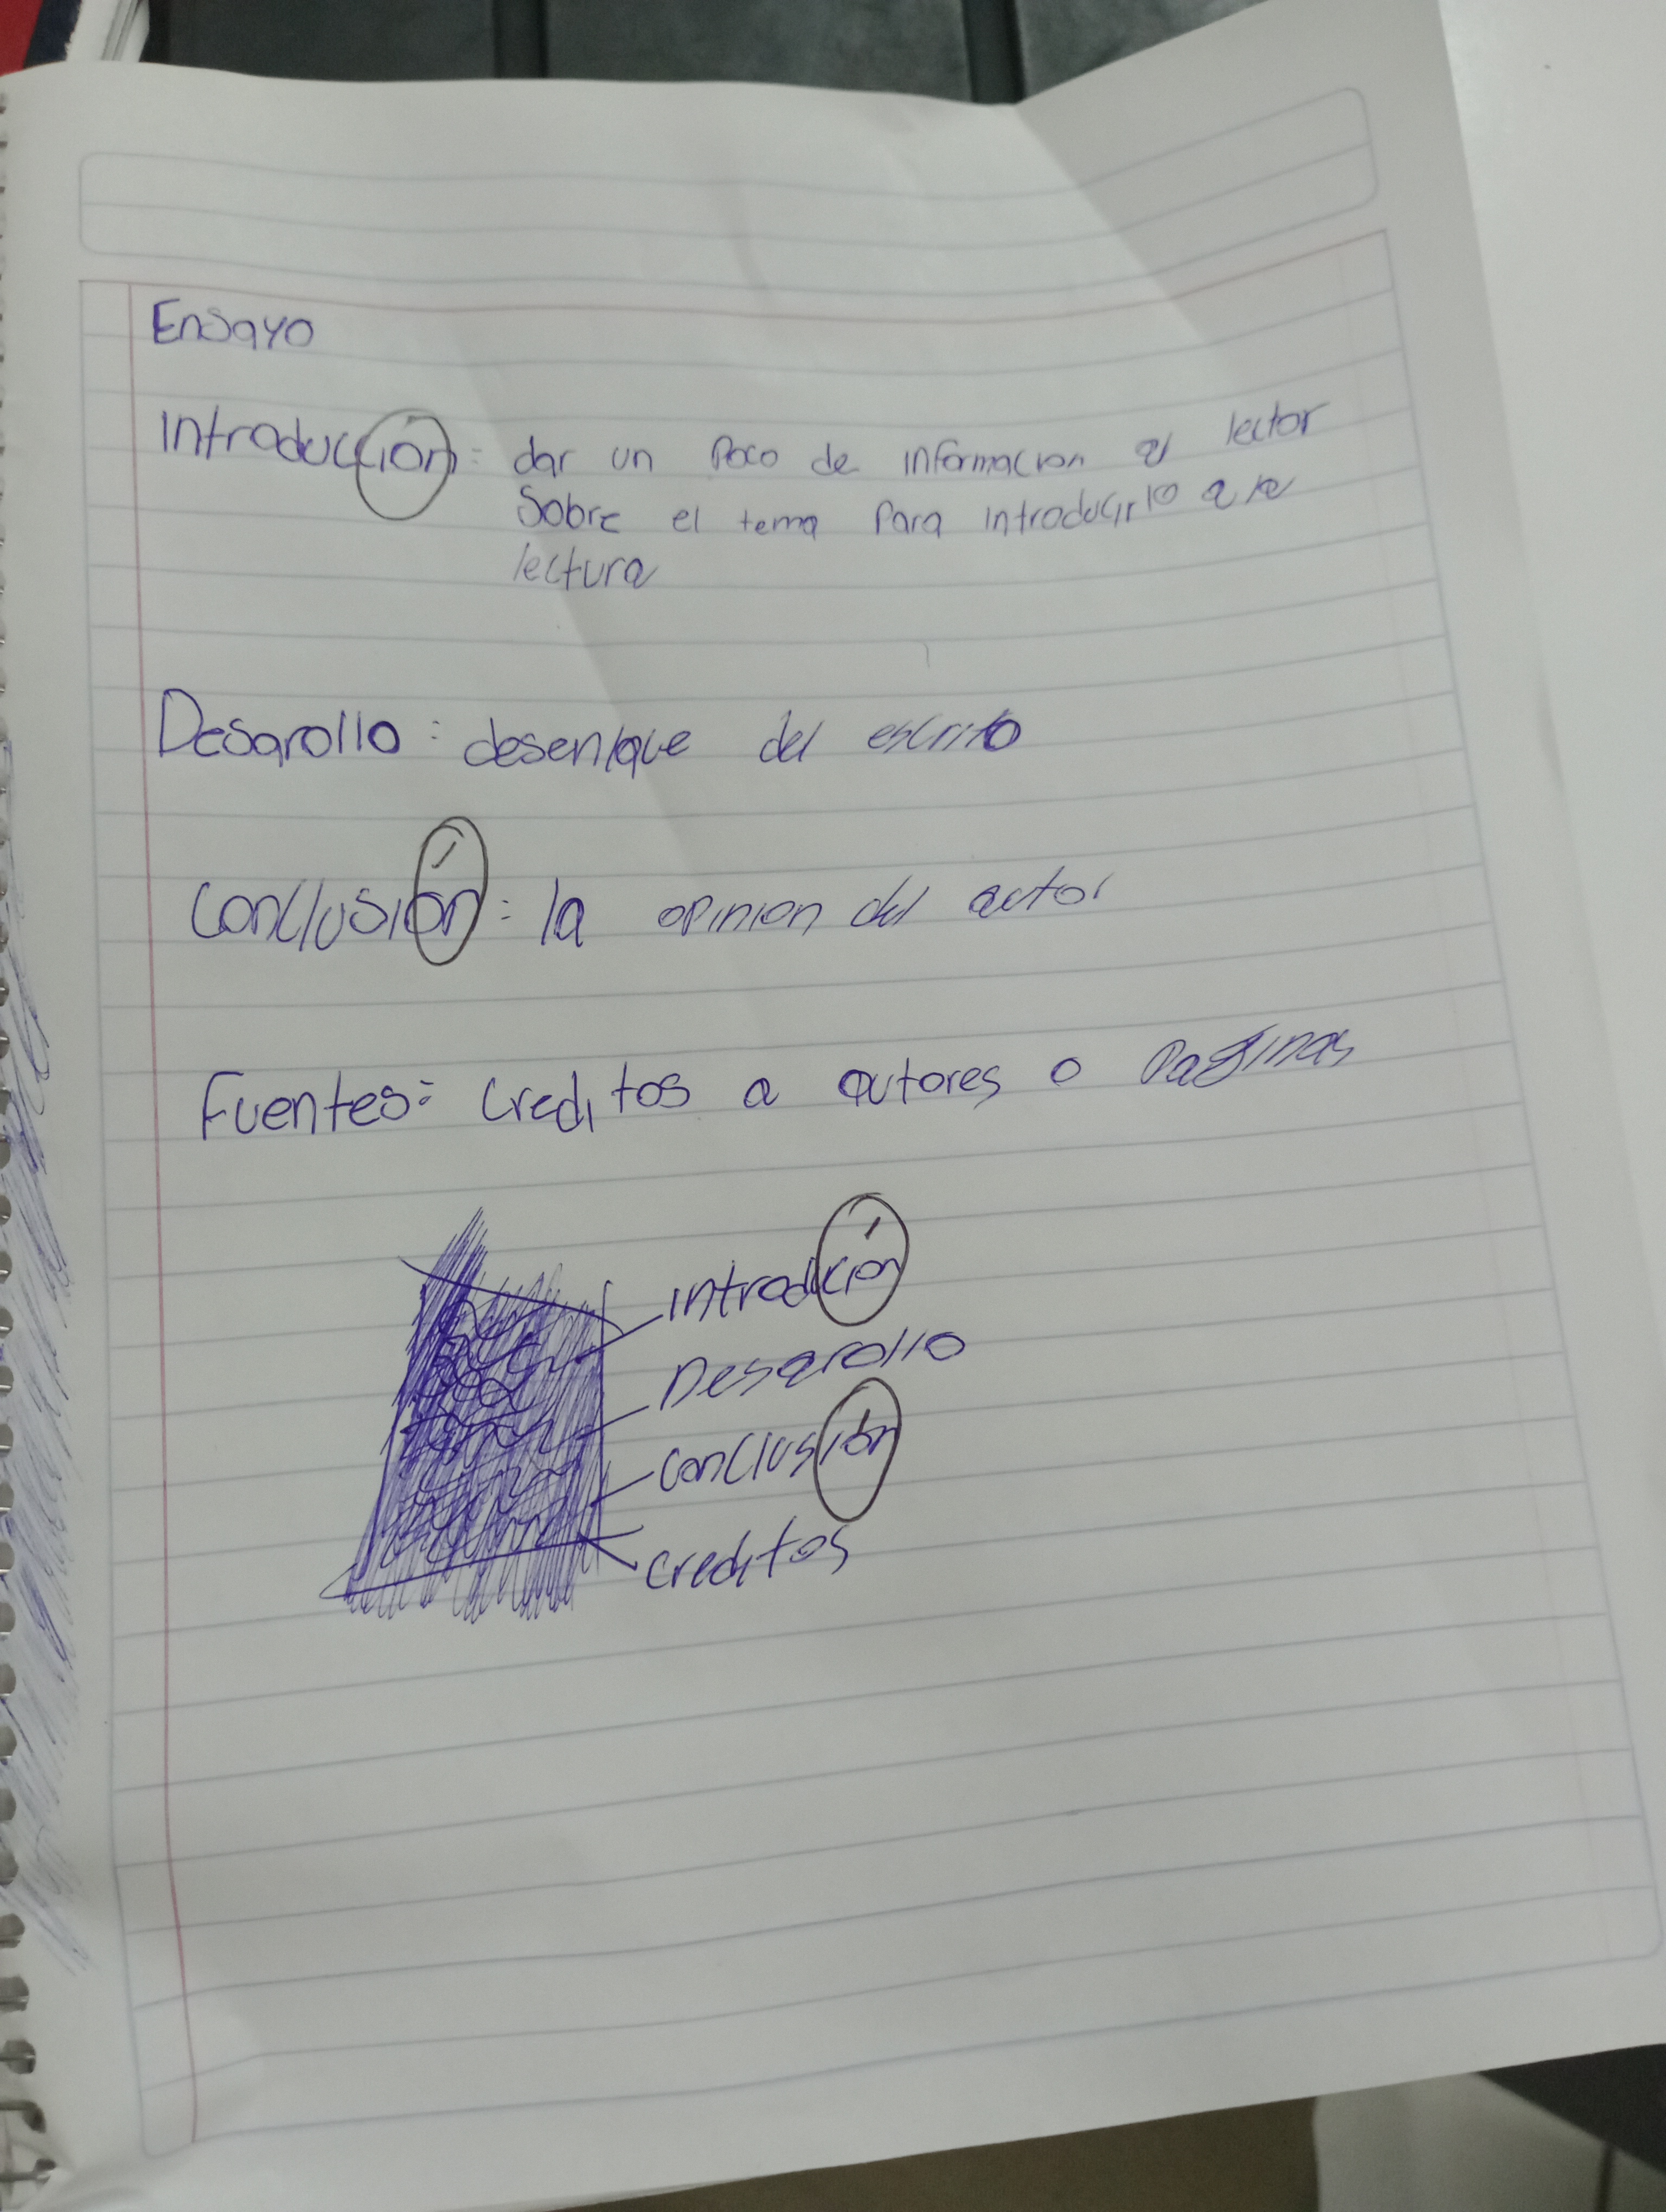 Ensayo
Introducción: dar un Poco de informacion al lector
Sobre el tema Para introducirlo a la
lectura
Desarollo: desenlaque del escrito
Conclusión: la opinion del autor
Fuentes: creditos a autores o Paginas
introdución
Desarollo
conclusión
creditos